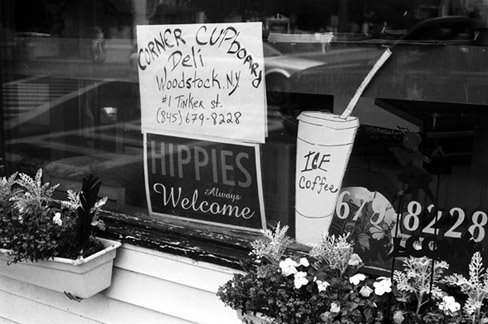 CORNER CUPboard
Deli
Woodstock, NY
#1 Tinker st.
(845) 679-8228
HIPPIES
Always
Welcome
ICE
Coffee
679 8228